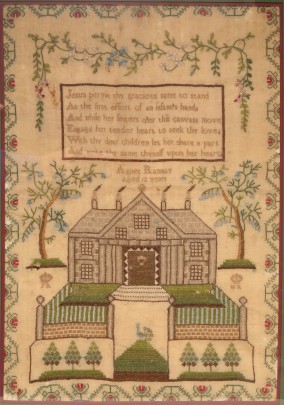 Jesus permit thy gracious name to stand
As the first efforts of an infants hand
And while her fingers oher this canvass move
Engage her tender heart to seek thy love
With thy dear children let her share a part
And write thy name thyself upon her heart
Agnes Ramsay
aged 12 years